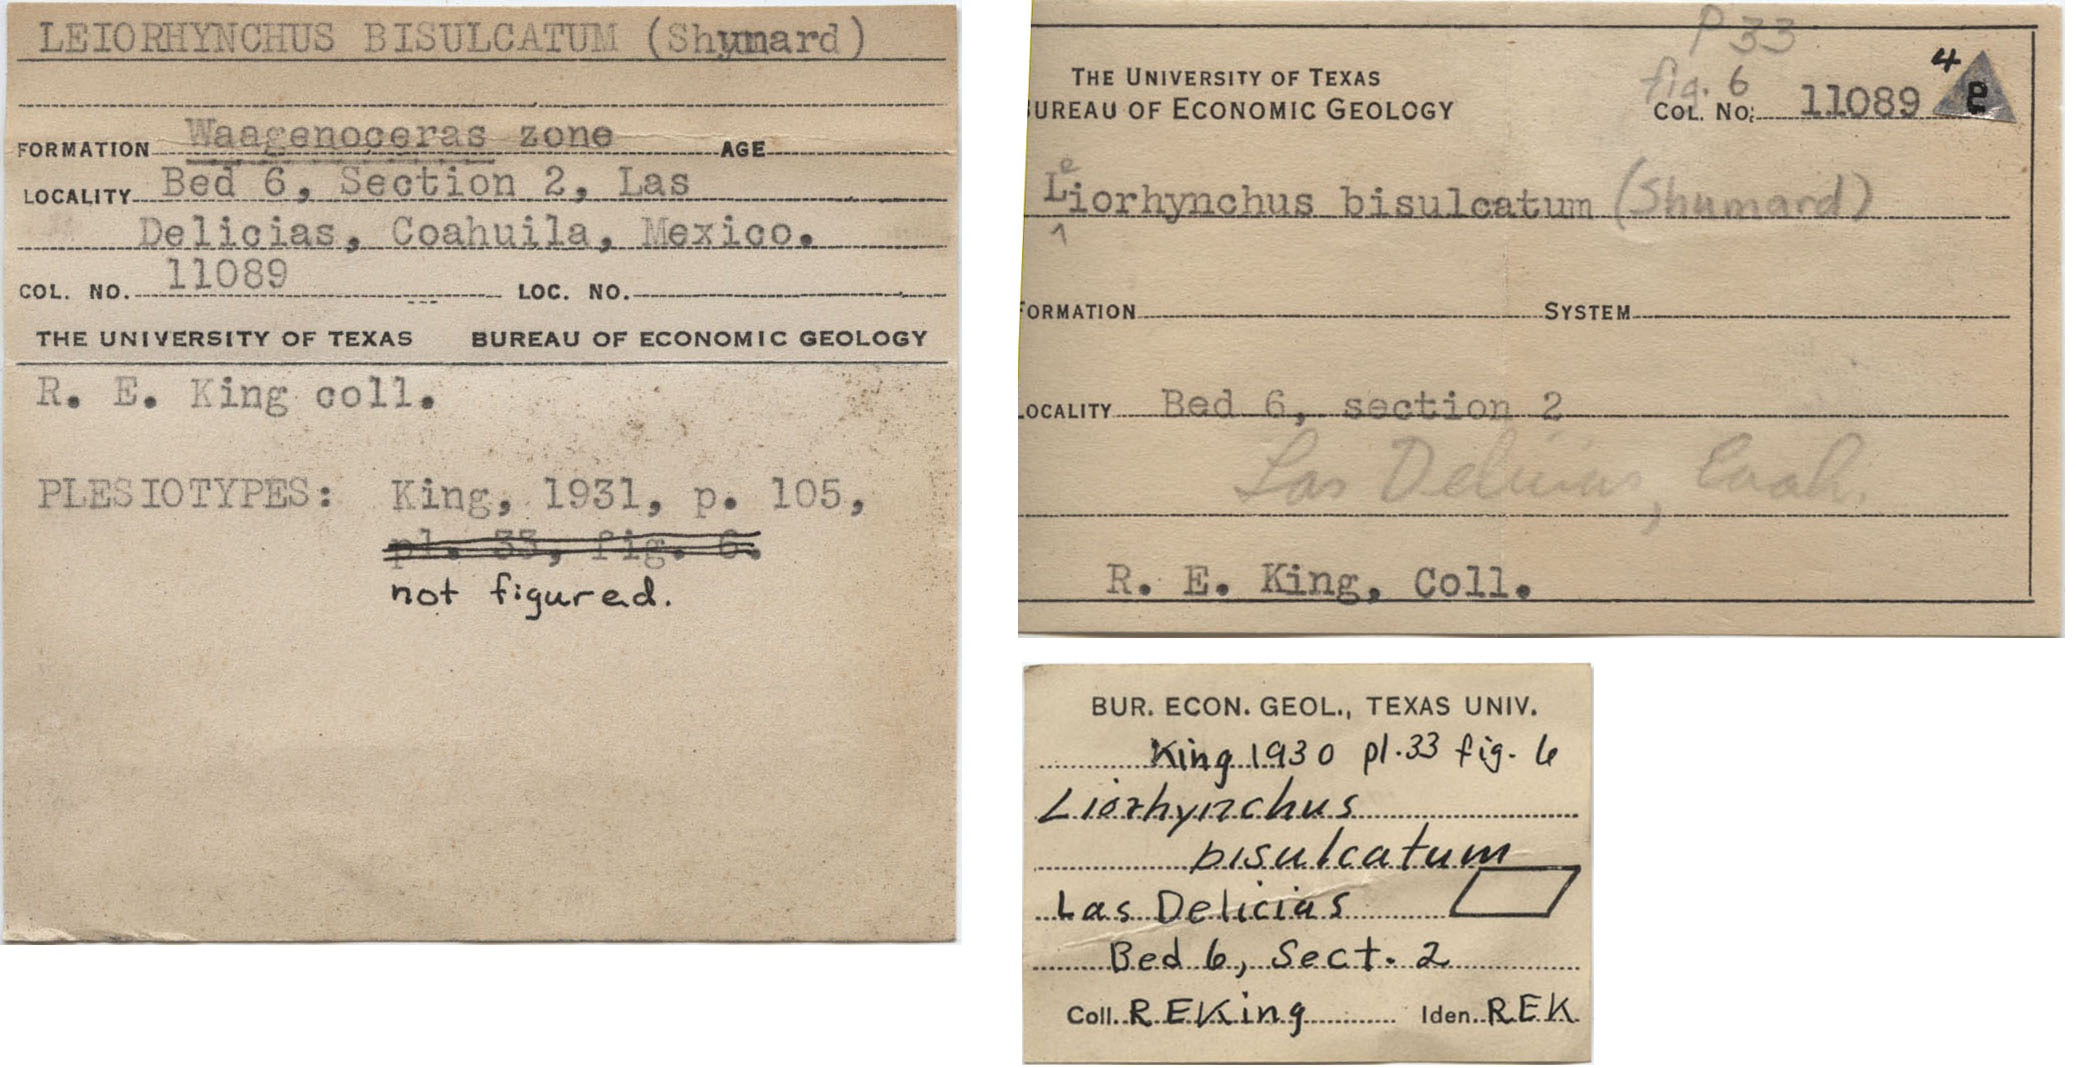 LEIORHYNCHUS BISULCATUM (Shumard)
FORMATION Waagenoceras zone AGE
LOCALITY Bed 6, Section 2, Las
Delicias, Coahuila, Mexico.
COL. NO. 11089 LOC. NO.
THE UNIVERSITY OF TEXAS BUREAU OF ECONOMIC GEOLOGY
R. E. King coll.
PLESIOTYPES: King, 1931, p. 105,
pl. 33, fig. 6.
not figured.
P 33
fig. 6
THE UNIVERSITY OF TEXAS
BUREAU OF ECONOMIC GEOLOGY
COL. NO. 11089 4
P
Leiorhynchus bisulcatum (Shumard)
FORMATION SYSTEM
LOCALITY Bed 6, section 2
Las Delicias, Coah.
R. E. King, Coll.
BUR. ECON. GEOL., TEXAS UNIV.
King 1930 pl.33 fig. 6
Liorhynchus
bisulcatum
Las Delicias
Bed 6, Sect. 2
Coll. R E King Iden. REK